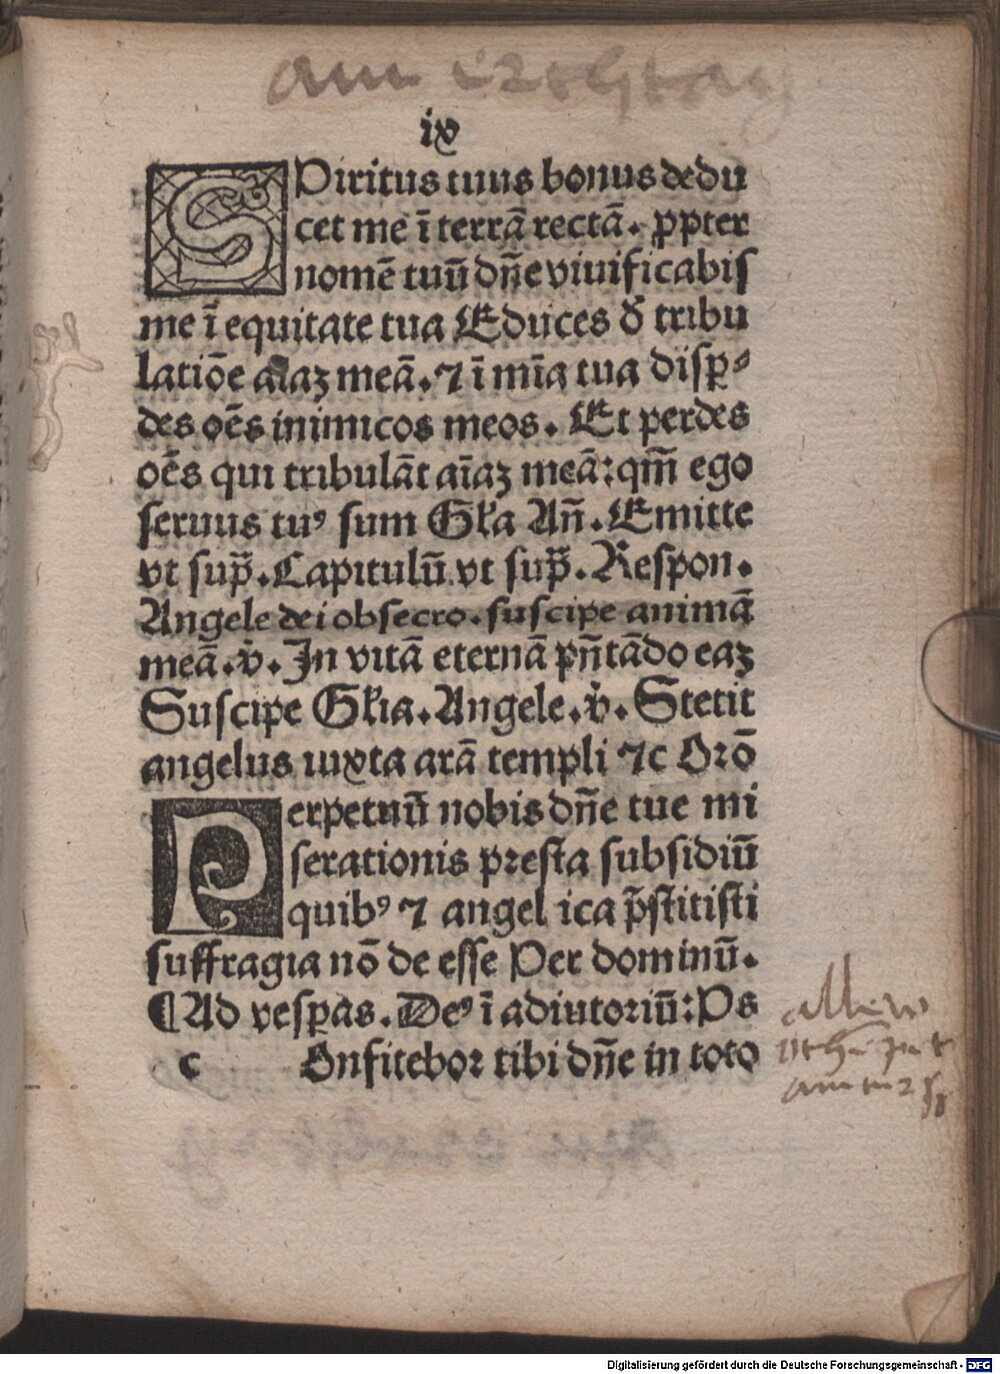 am
ix
SPiritus tuus bonus dedu
cet me ī terrā rectā. ꝓpter
nomē tuū dn̄e viuificabis
me ī equitate tua Educes đ tribu
latiōe aīaꝫ meā. ⁊ ī mīa tua disꝑ⸗
des oēs inimicos meos. Et perdes
oēs qui tribulāt aīaꝫ meā: qm̄ ego
seruus tuꝰ sum Gl̄a An̄. Emitte
vt sup̄. Capitulū vt sup̄. Respon.
Angele dei obsecro. suscipe animā
meā. v̇. In vitā eternā pn̄tādo eaꝫ
Suscipe Gl̄ia. Angele. v̇. Stetit
angelus iuxta arā templi ⁊c Orō
Perpetuū nobis dn̄e tue mi
serationis presta subsidiū
quibꝰ ⁊ angel ica p̄stitisti
suffragia nō de esse Per dominū.
¶Ad vesꝑas. Deꝰ ī adiutoriū: Ps
c Onfitebor tibi dn̄e in toto
Digitalisierung gefördert durch die Deutsche Forschungsgemeinschaft - DFG